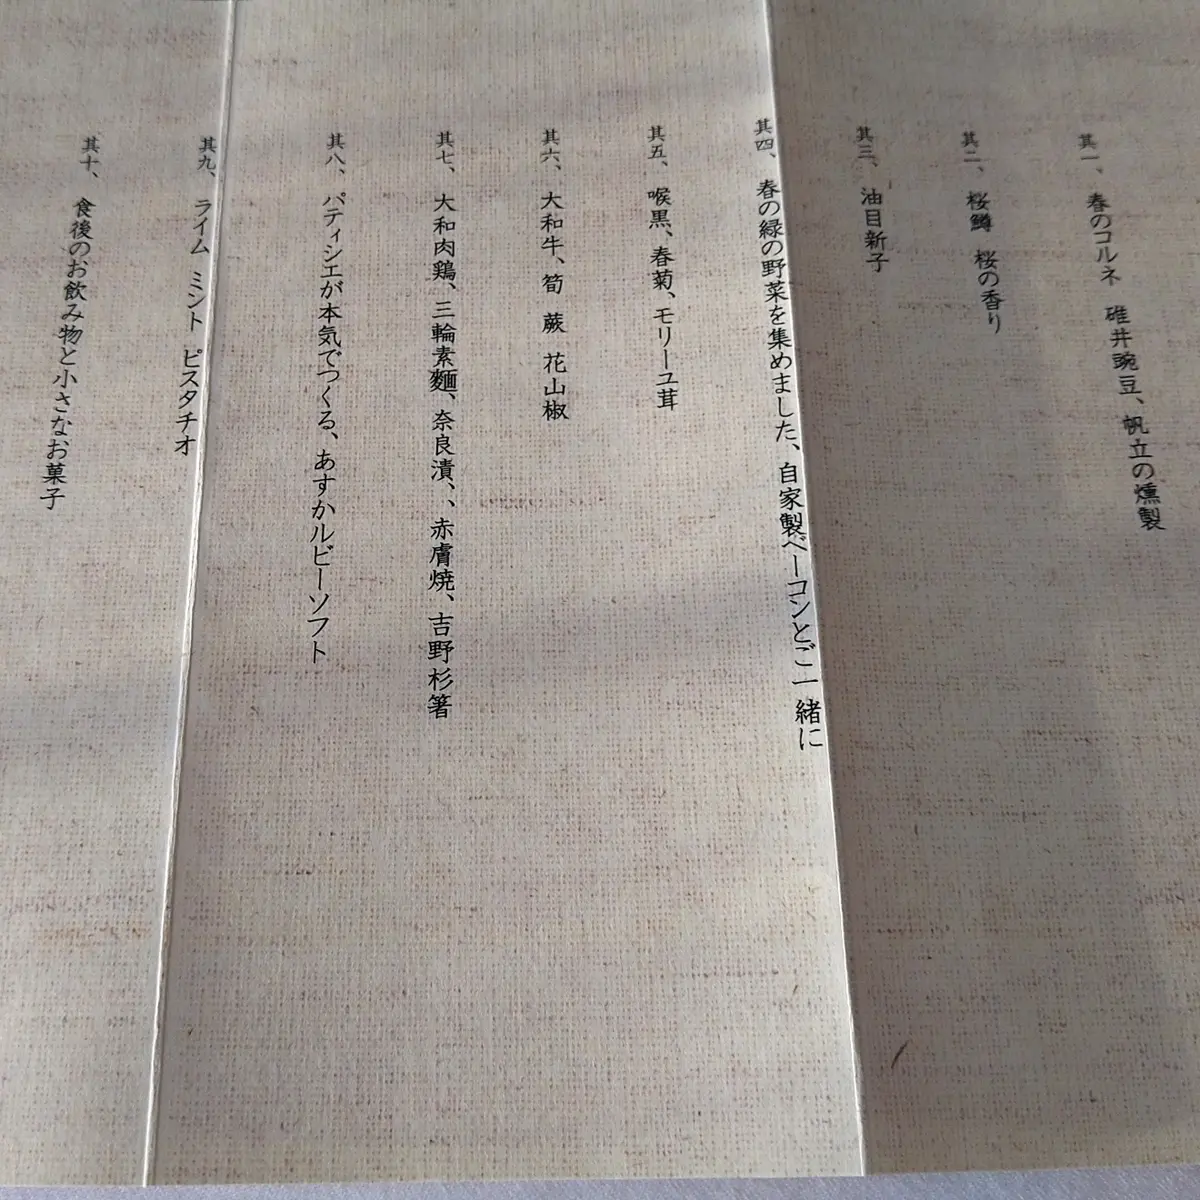 其一、春のコルネ 碓井豌豆、帆立の燻製
其二、桜鱒 桜の香り
其三、油目新子
其四、春の緑の野菜を集めました、自家製ベーコンとご一緒に
其五、喉黒、春菊、モリーユ茸
其六、大和牛、筍 蕨 花山椒
其七、大和肉鶏、三輪素麺、奈良漬、、赤膚焼、吉野杉箸
其八、パティシエが本気でつくる、あすかルビーソフト
其九、ライム ミント ピスタチオ
其十、食後のお飲み物と小さなお菓子